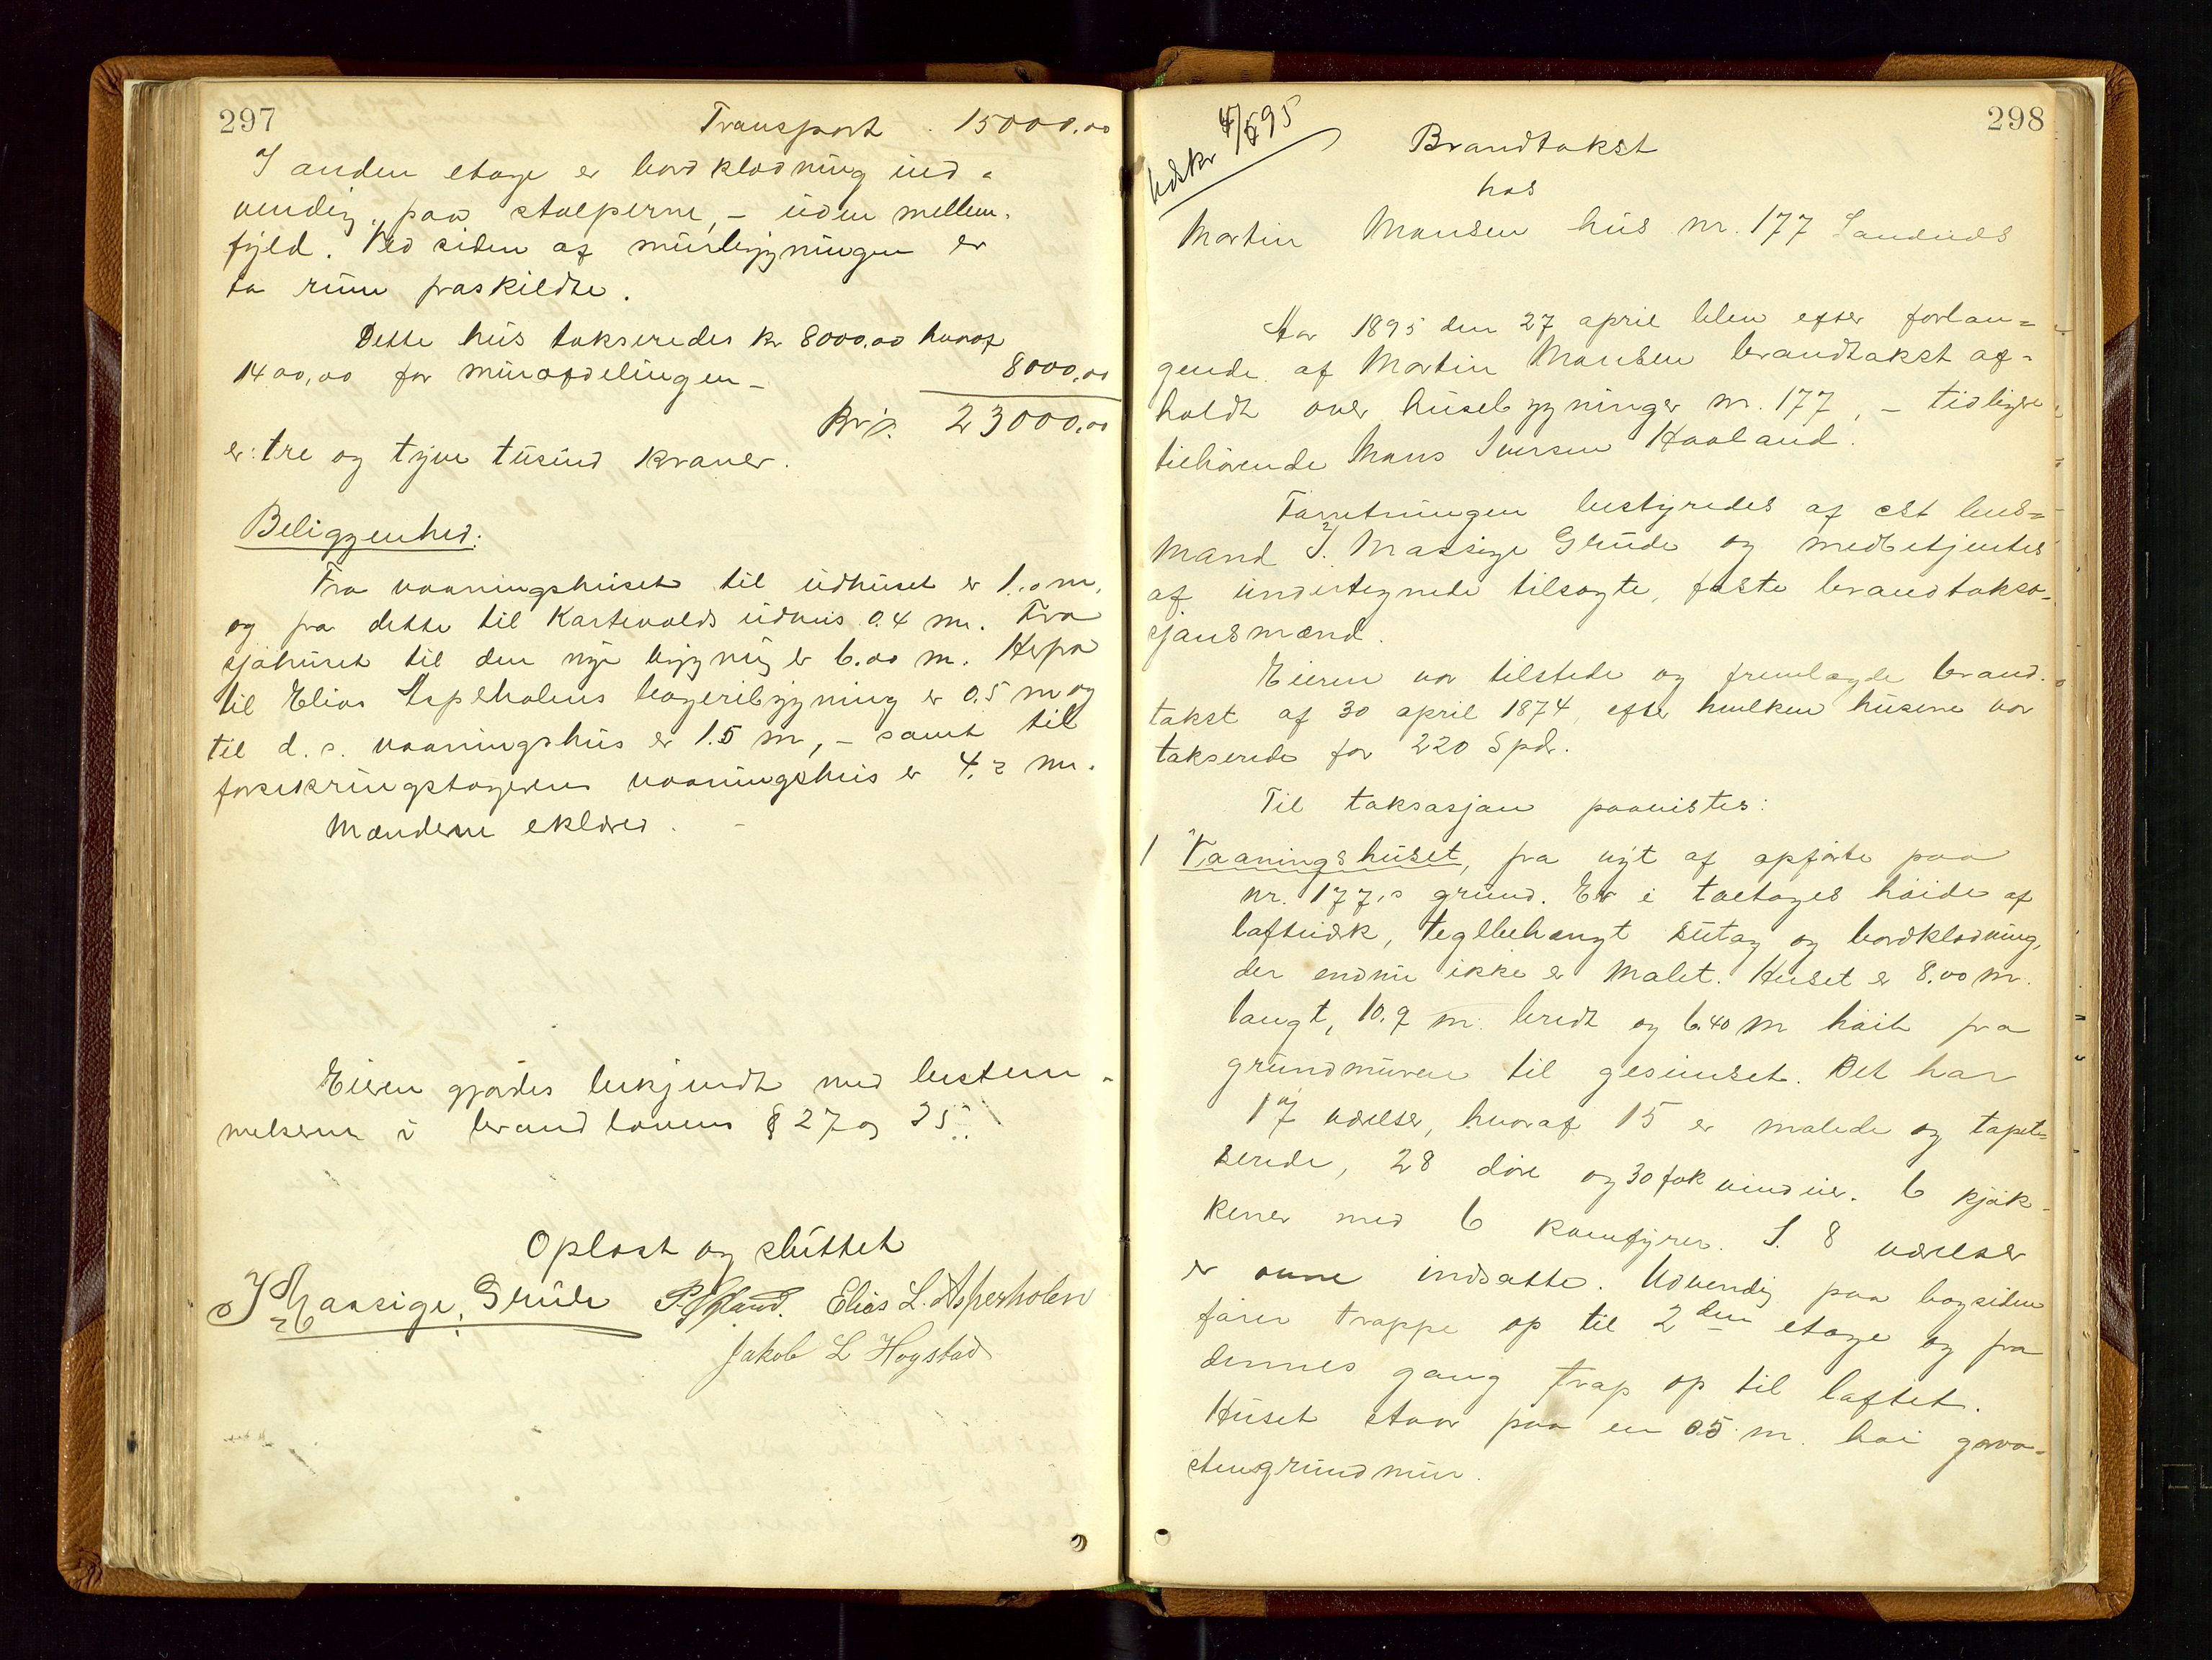 297
Transport . 15000.00
I anden etage er bordklædning ind-
vendig paa stolperne, – uden mellem-
fyld. Ved siden af murbygningen er
to rum fraskildte.
Dette hus takseredes kr 8000.00 hvoraf
1400,00 for murafdelingen – 8000.00
Kr. 23000.00
er: tre og tyve tusind kroner.
Beliggenhed:
Fra vaaningshuset til udhuset er 1.0 m,
og fra dette til Kartevolds udhus 0.4 m. Fra
sjøhuset til den nye bygning er 6.00 m. Herfra
til Elias Asperholens bageribygning er 0.5 m og
til d. s. vaaningshus er 1.5 m, – samt til
forsikringstagerens vaaningshus er 4.2 m.
Mændene eklæred. –
Eieren gjordes bekjendt med bestem-
melserne i brandlovens § 27 og 35.
Oplæst og sluttet
J Maasige Grude P. Elias L. Asperholen
Jakob L Hogstad
298
Udskr 4/5 95
Brandtakst
hos
Martin Monsen hus nr. 177 Sandnes
Aar 1895 den 27 april blev efter forlan=
gende af Martin Monsen brandtakst af-
holdt over husebygninger nr. 177, – tidligere
tilhørende Mons Iversen Haaland.
Forretningen bestyredes af cst lens=
mand J. Maasige Grude og medbetjentes
af undertegnede tilsagte, faste brandtaksa-
sjonsmænd.
Eieren var tilstede og fremlagde brand-
takst af 30 april 1874, efter hvilken husene var
takserede for 220 Spdr.
Til taksasjon paavistes:
1 Vaaningshuset, fra nyt af opførte paa
nr. 177,s grund. Er i toetages høide af
loftverk, teglbehængt sutag og bordklædning,
der endnu ikke er malet. Huset er 8.00 m.
langt, 10.9 m. bredt og 6.40 m høit fra
grundmuren til gesimset. Det har
17 værelser, hvoraf 15 er malede og tapet=
serede, 28 døre og 30 fok vinduer. 6 kjøk-
kener med 6 komfyrer. I 8 værelser
er ovne indsatte. Udvendig paa bagsiden
fører trappe op til 2den etage og fra
dennes gang trap op til loftet.
Huset staar paa en 0.5 m. høi graa-
stensgrundmur.